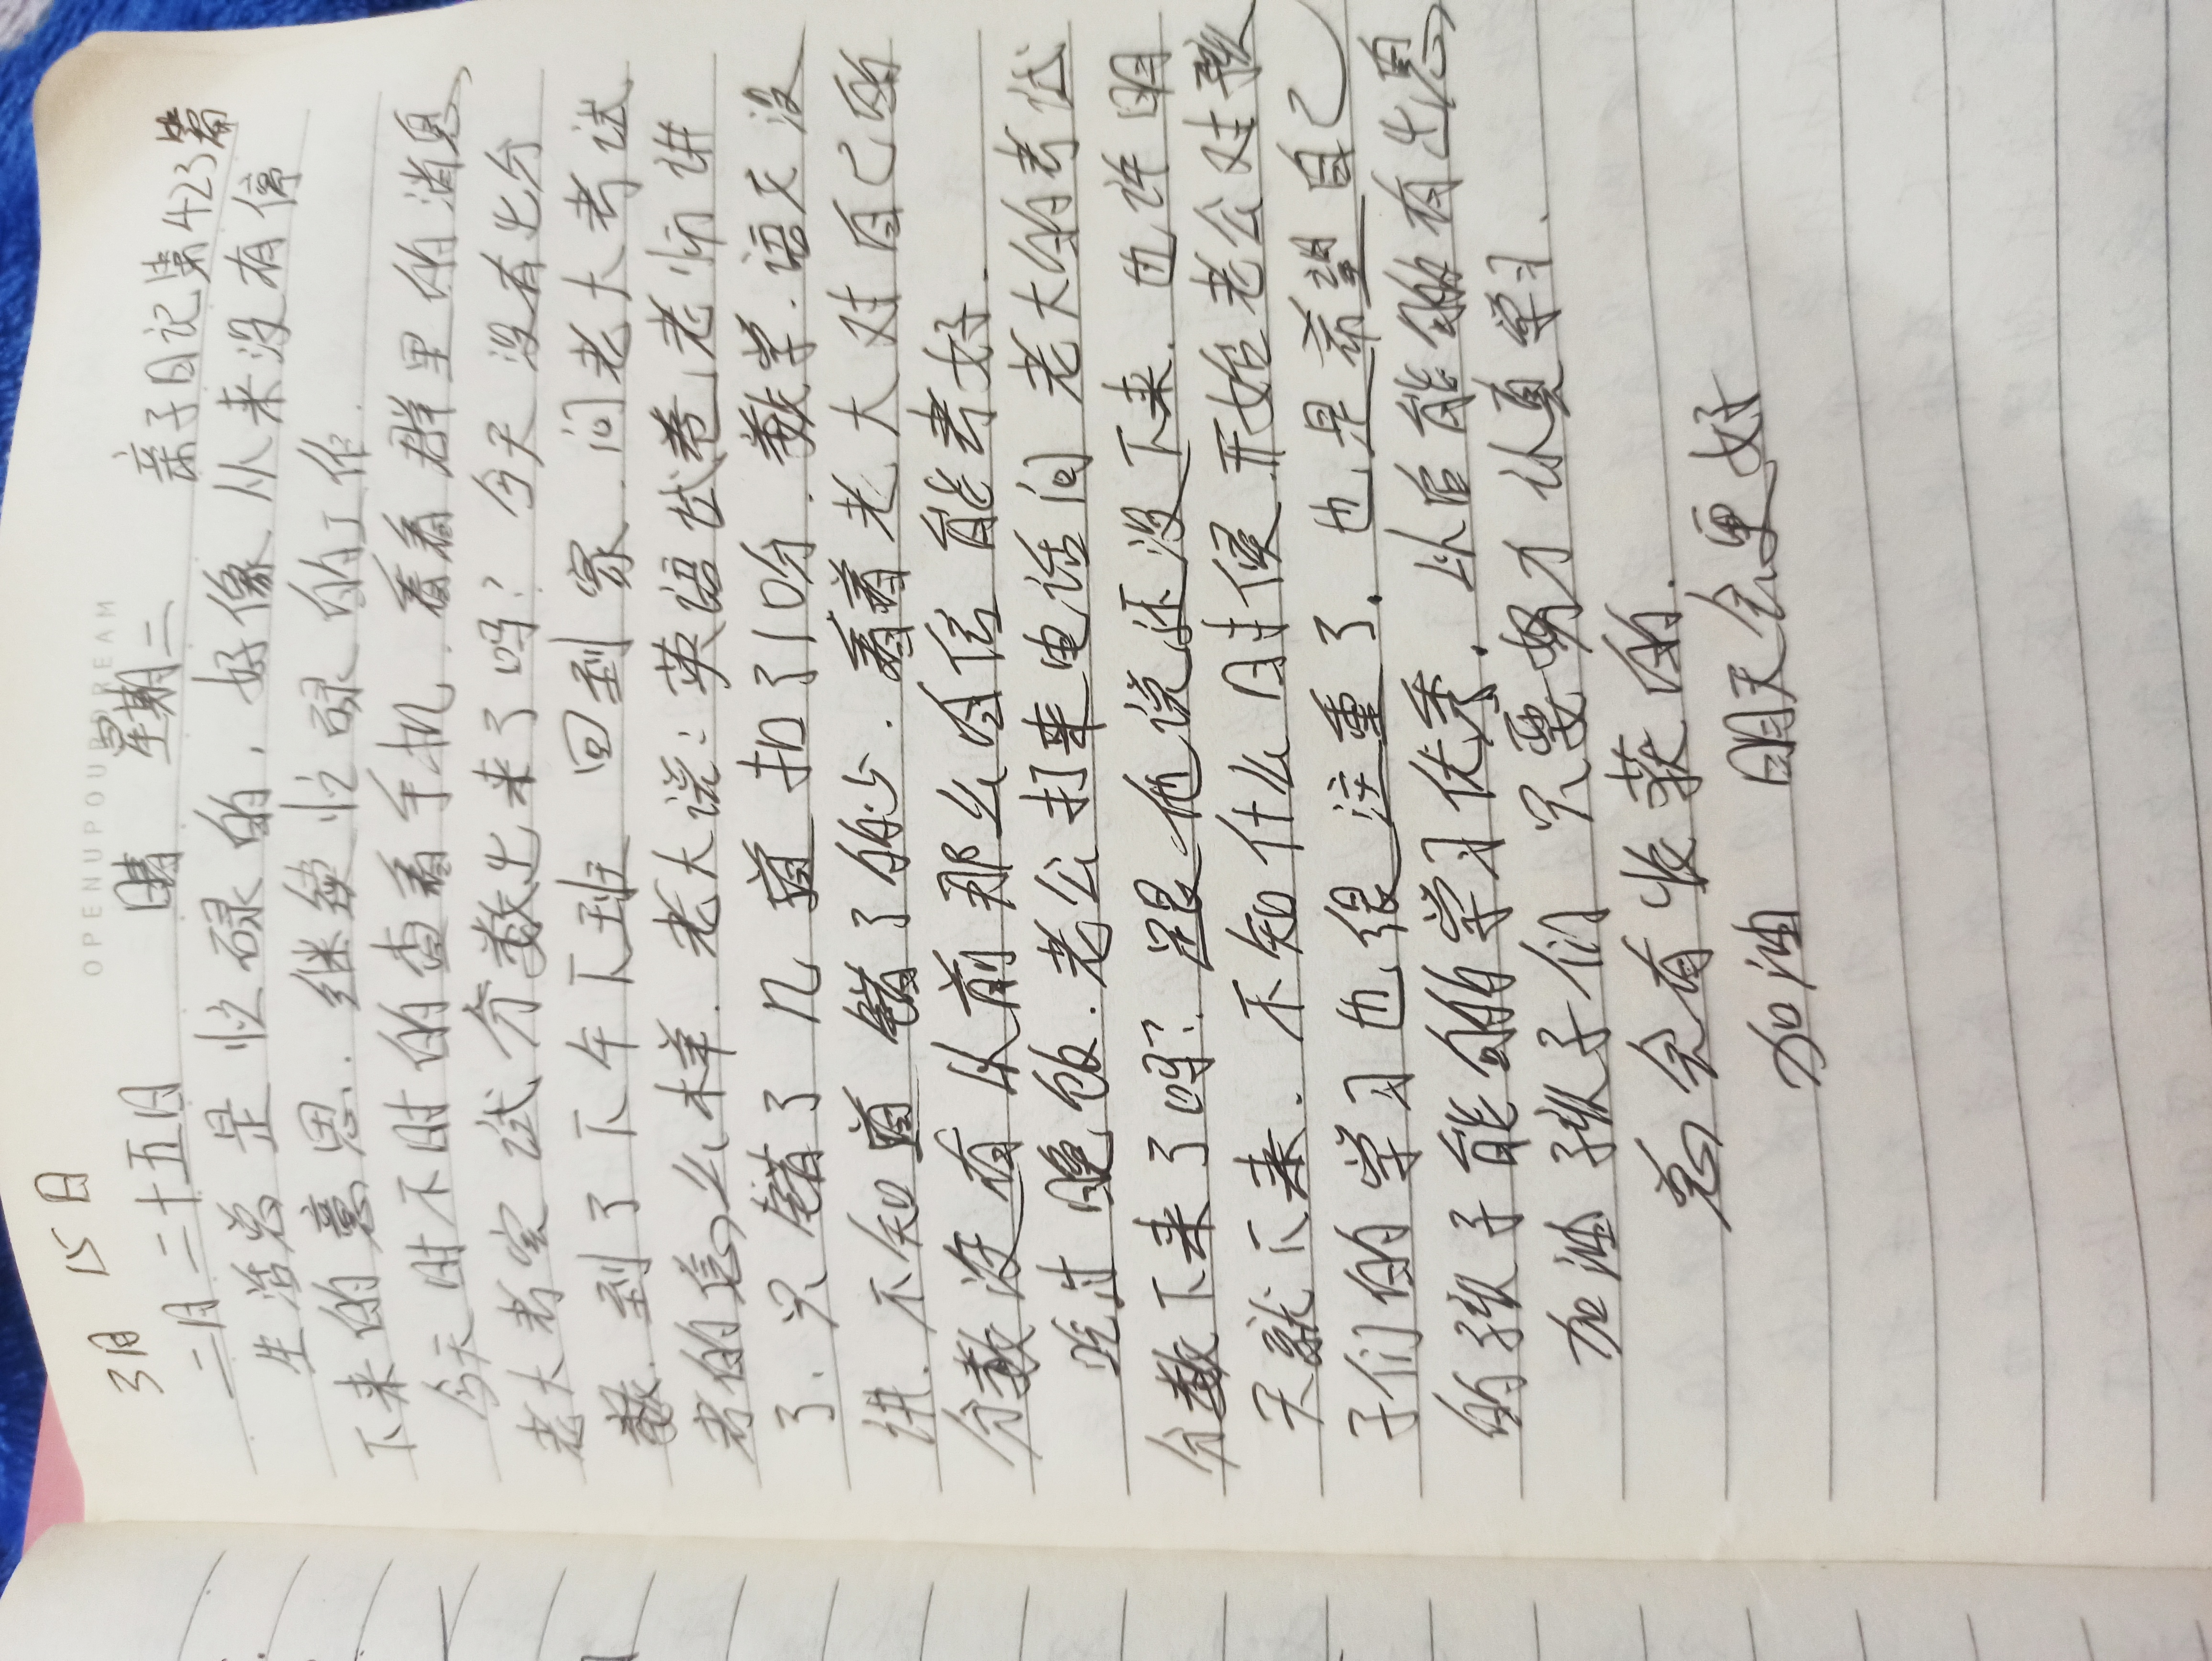 OPENUPOUPDREAM
3月 15日
二月二十五日 晴 星期二 亲子日记第423篇
生活总是忙碌的，好像从来没有停
下来的意思.继续忙碌的工作.
今天时不时的查看手机.看看群里的消息,
老大考完试分数出来了吗?今天没有出分
数.到了下午下班 回到家.问老大考试
考的怎么样.老大说:英语试卷老师讲
了.只错了几道 扣了10分.数学.语文没
讲.不知道错了多少.看着老大对自己的
分数没有从前那么自信能考好.
吃过晚饭.老公打来电话问老大的考试
分数下来了吗?跟他说还没下来.也许明
天就下来.不知什么时候开始老公对孩
子们的学习也很注重了.也是希望自己
的孩子能够的学习优秀.以后能够有出息
加油孩子们 只要努力认真学习.
总会有收获的.
加油 明天会更好